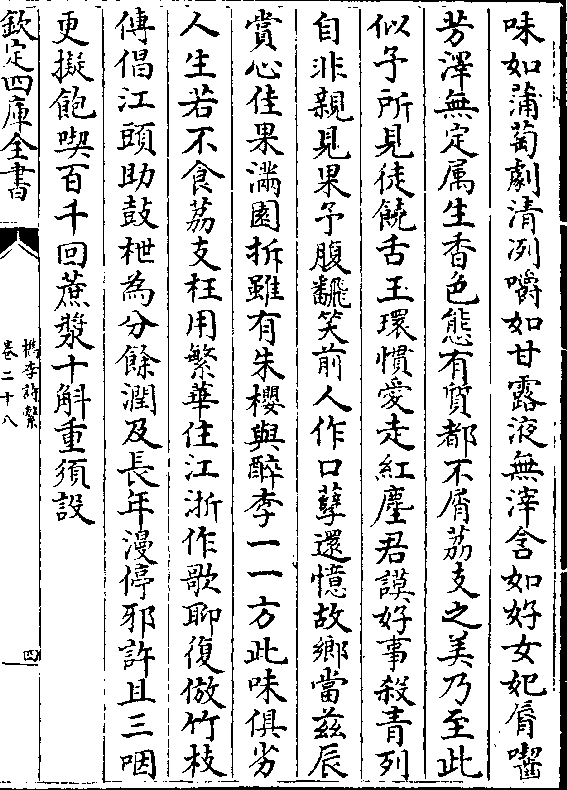 味如蒲萄劇清冽嚼如甘露液無滓含如好女妃脣嚙
芳澤無定属生香色態有質都不屑荔支之美乃至此
似子所見徒饒舌玉環慣愛走紅塵君謨好事殺青列
自非親見果予腹飜笑前人作口孽還憶故鄉當茲辰
賞心佳果滿園拆雖有朱櫻與醉李一一方此味俱劣
人生若不食荔支枉用繁華住江浙作歌聊復倣竹枝
傳倡江頭助鼓枻為分餘潤及長年漫停邪許且三咽
更擬飽喫百千回蔗漿十斛重須設
欽定四庫全書
檇李詩繫
卷二十八
四